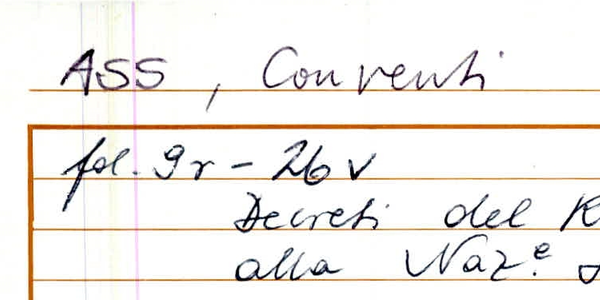 ASS, Conventi
fol. 9r - 26v
Decreti del
alla Naz.e